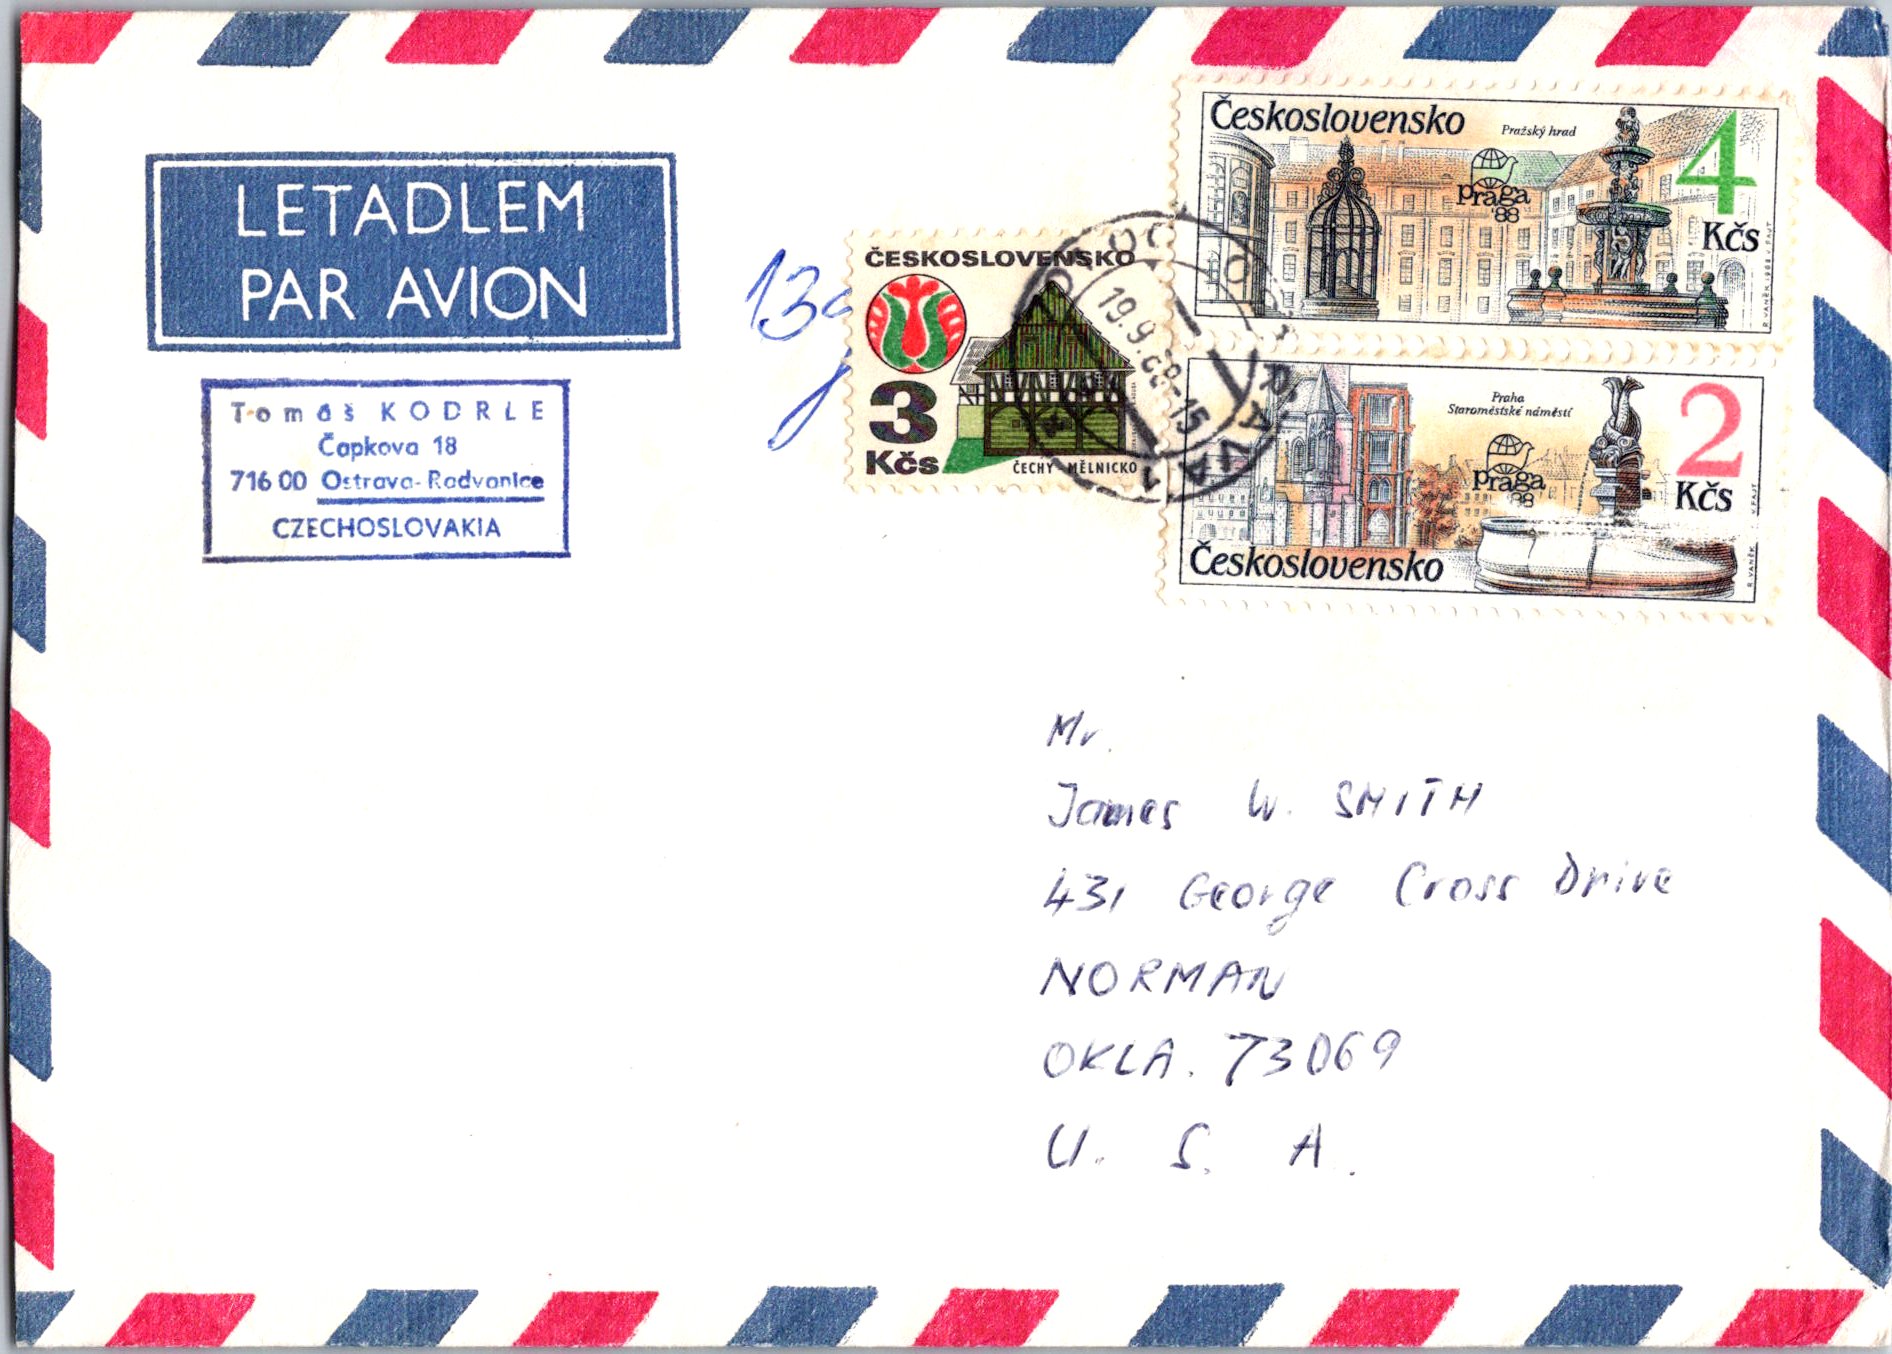 LETADLEM
PAR AVION
Tomáš KODRLE
Čapkova 18
716 00 Ostrava-Radvanice
CZECHOSLOVAKIA
13g
ČESKOSLOVENSKO
3
Kčs
ČECHY-MĚLNICKO
19.9.88-15
OSTRAVA
Československo
Pražský hrad
praga
'88
4
Kčs
R. VANĚK 1988 V. FAJT
Praha
Staroměstské náměstí
praga
'88
2
Kčs
Československo
R. VANĚK V. FAJT
Mr.
James W. SMITH
431 George Cross Drive
NORMAN
OKLA. 73069
U. S. A.